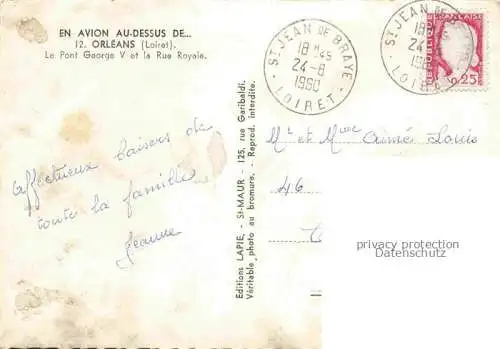 EN AVION AU-DESSUS DE...
12. ORLÉANS (Loiret).
Le Pont George V et la Rue Royale.
ST JEAN DE BRAYE
18 H 45
24-8
1960
LOIRET
ST JEAN DE BRAYE
18
24-
196
LOIRET
RÉPUBLIQUE FRANÇAISE
0,25
Affectueux baisers de
toute la famille
Jeanne
Editions LAPIE. - St-MAUR - 125, rue Garibaldi.
Véritable photo au bromure. - Reprod. interdite.
Mr et Mme Aimé Louis
46
privacy protection
Datenschutz